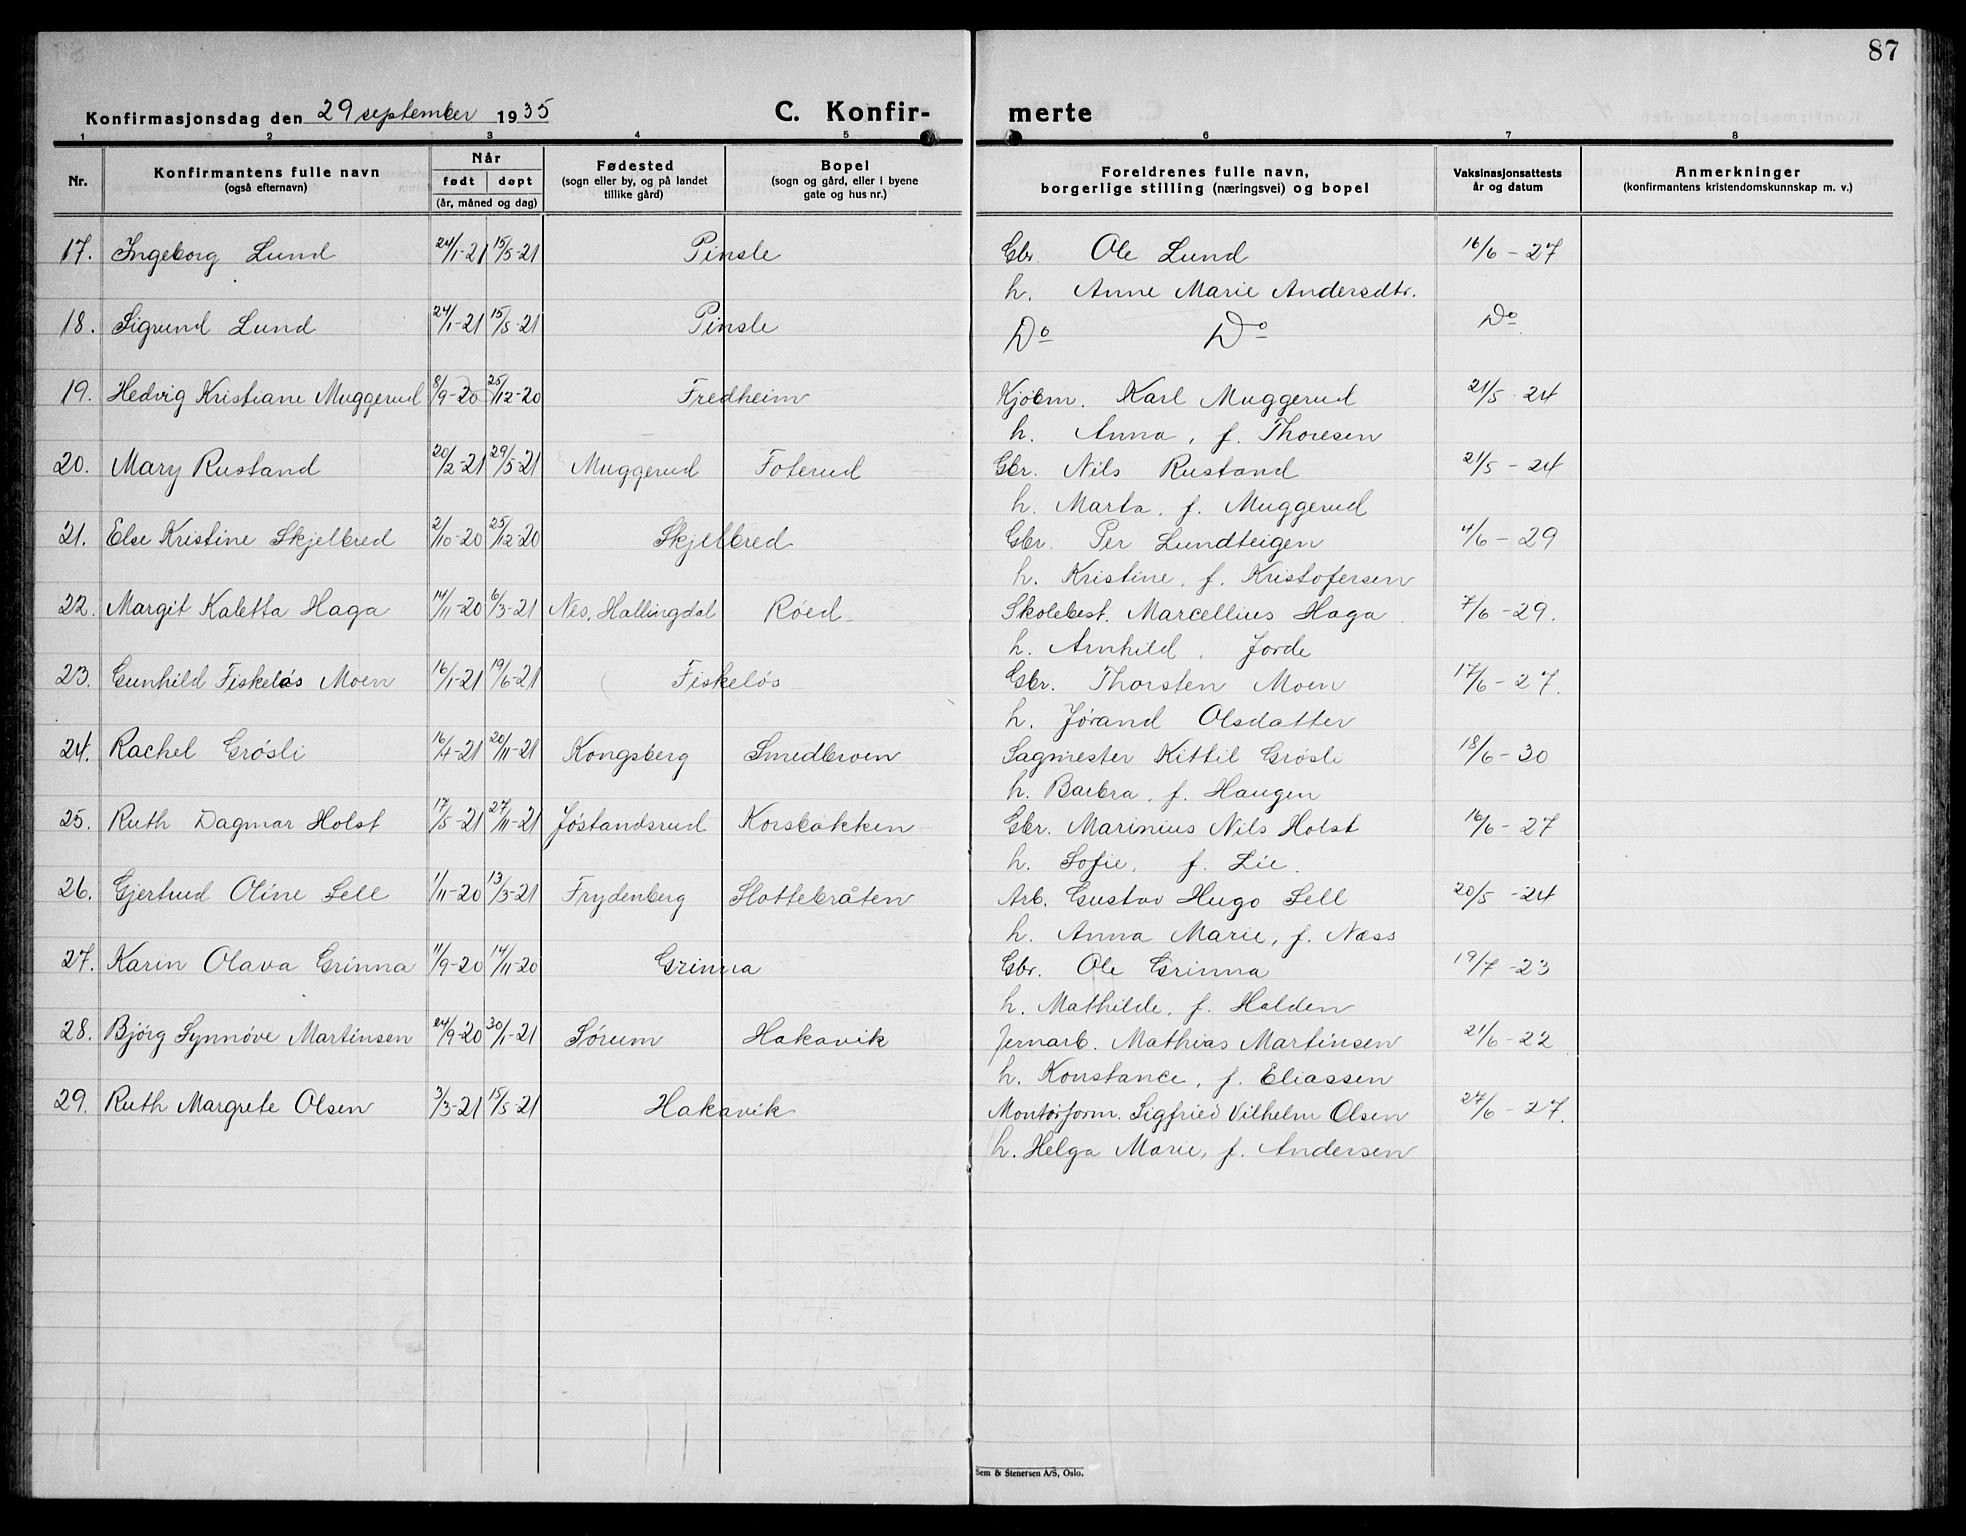 87
Konfirmasjonsdag den 29 september 1935 C. Konfir- merte
1 2 3 4 5 6 7 8
Nr. Konfirmantens fulle navn (også efternavn) Når født døpt (år, måned og dag) Fødested (sogn eller by, og på landet tillike gård) Bopel (sogn og gård, eller i byene gate og hus nr.) Foreldrenes fulle navn, borgerlige stilling (næringsvei) og bopel Vaksinasjonsattests år og datum Anmerkninger (konfirmantens kristendomskunnskap m. v.)
17. Ingeborg Lund 24/1-21 15/5-21 Pinsle Gbr. Ole Lund 16/6 - 27
h. Anne Marie Andersdtr.
18. Sigrund Lund 24/1-21 15/5-21 Pinsle Do Do Do
19. Hedvig Kristiane Muggerud 8/9-20 25/12-20 Fredheim Kjøbm. Karl Muggerud 21/5 - 24
h. Anna, f. Thoresen
20. Mary Rustand 20/2-21 29/5-21 Muggerud Foterud Gbr. Nils Rustand 21/5 - 24
h. Marta, f. Muggerud
21. Else Kristine Skjelbred 2/10-20 25/12-20 Skjelbred Gbr. Per Lundteigen 4/6 - 29
h. Kristine, f. Kristofersen
22. Margit Kaletta Haga 14/11-20 6/3-21 Nes, Hallingdal Røed Skolebest. Marcellius Haga 7/6 - 29.
h. Arnhild, Jorde
23. Gunhild Fiskeløs Moen 16/1-21 19/6-21 Fiskeløs Gbr. Thorsten Moen 17/6 - 27.
h. Jørand Olsdatter
24. Rachel Grøsli 16/4-21 20/11-21 Kongsberg Smedbroen Sagmester Kittil Grøsli 18/6 - 30
h. Barbra, f. Haugen
25. Ruth Dagmar Holst 17/5-21 27/11-21 Jøstandsrud Korsbakken Gbr. Marinius Nils Holst 16/6 - 27
h. Sofie, f. Lie.
26. Gjertrud Oline Sell 1/11-20 13/3-21 Frydenberg Slottebråten Arb. Gustav Hugo Sell 20/5 - 24
h. Anna Marie, f. Næss
27. Karin Olava Grinna 11/9-20 14/11-20 Grinna Gbr. Ole Grinna 19/7 - 23
h. Mathilde, f. Holden
28. Bjørg Synnøve Martinsen 24/9-20 30/1-21 Sørum Hakavik Jernarb. Mathias Martinsen 21/6 - 22
h. Konstance, f. Eliassen
29. Ruth Margrete Olsen 3/3-21 15/5-21 Hakavik Montørform. Sigfried Vilhelm Olsen 27/6 - 27.
h. Helga Marie, f. Andersen
Sem & Stenersen A/S, Oslo.